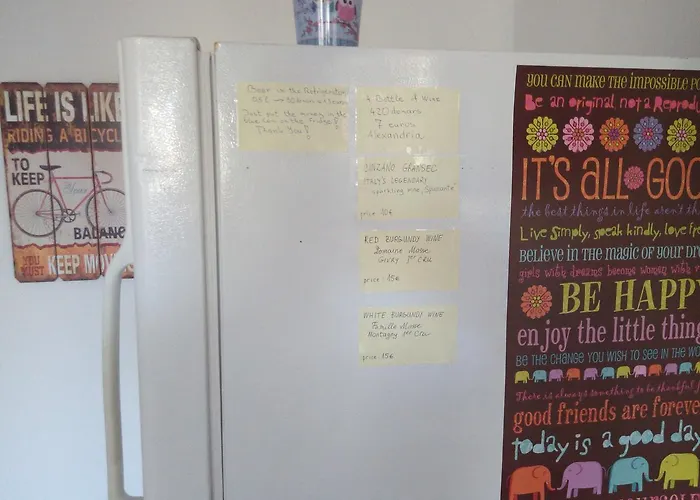 LIFE IS LIKE
RIDING A BICYCLE
TO
KEEP
BALANCE
YOU MUST KEEP MOVING
Beer in the Refrigerator
Just put the money in the
blue can on the fridge!
Thank You!
A Bottle of Wine
420 denars
7 euros
Alexandria
CINZANO GRANSEC
ITALY'S LEGENDARY
sparkling wine, "Spumante"
price: 10€
RED BURGUNDY WINE
Domaine Masse
GIVRY 1er CRU
price: 15€
WHITE BURGUNDY WINE
Famille Masse
Montagny 1er Cru
price: 15€
YOU CAN MAKE THE IMPOSSIBLE PO
Be an original not a Reprod
IT'S all GOO
the best things in life aren't th
Live simply, speak kindly, love fre
BELIEVE IN THE MAGIC OF YOUR DR
girls with dreams become women with
BE HAPPY
enjoy the little thing
BE THE CHANGE YOU WISH TO SEE IN THE WO
There is always something to be thankful f
good friends are foreve
today is a good day